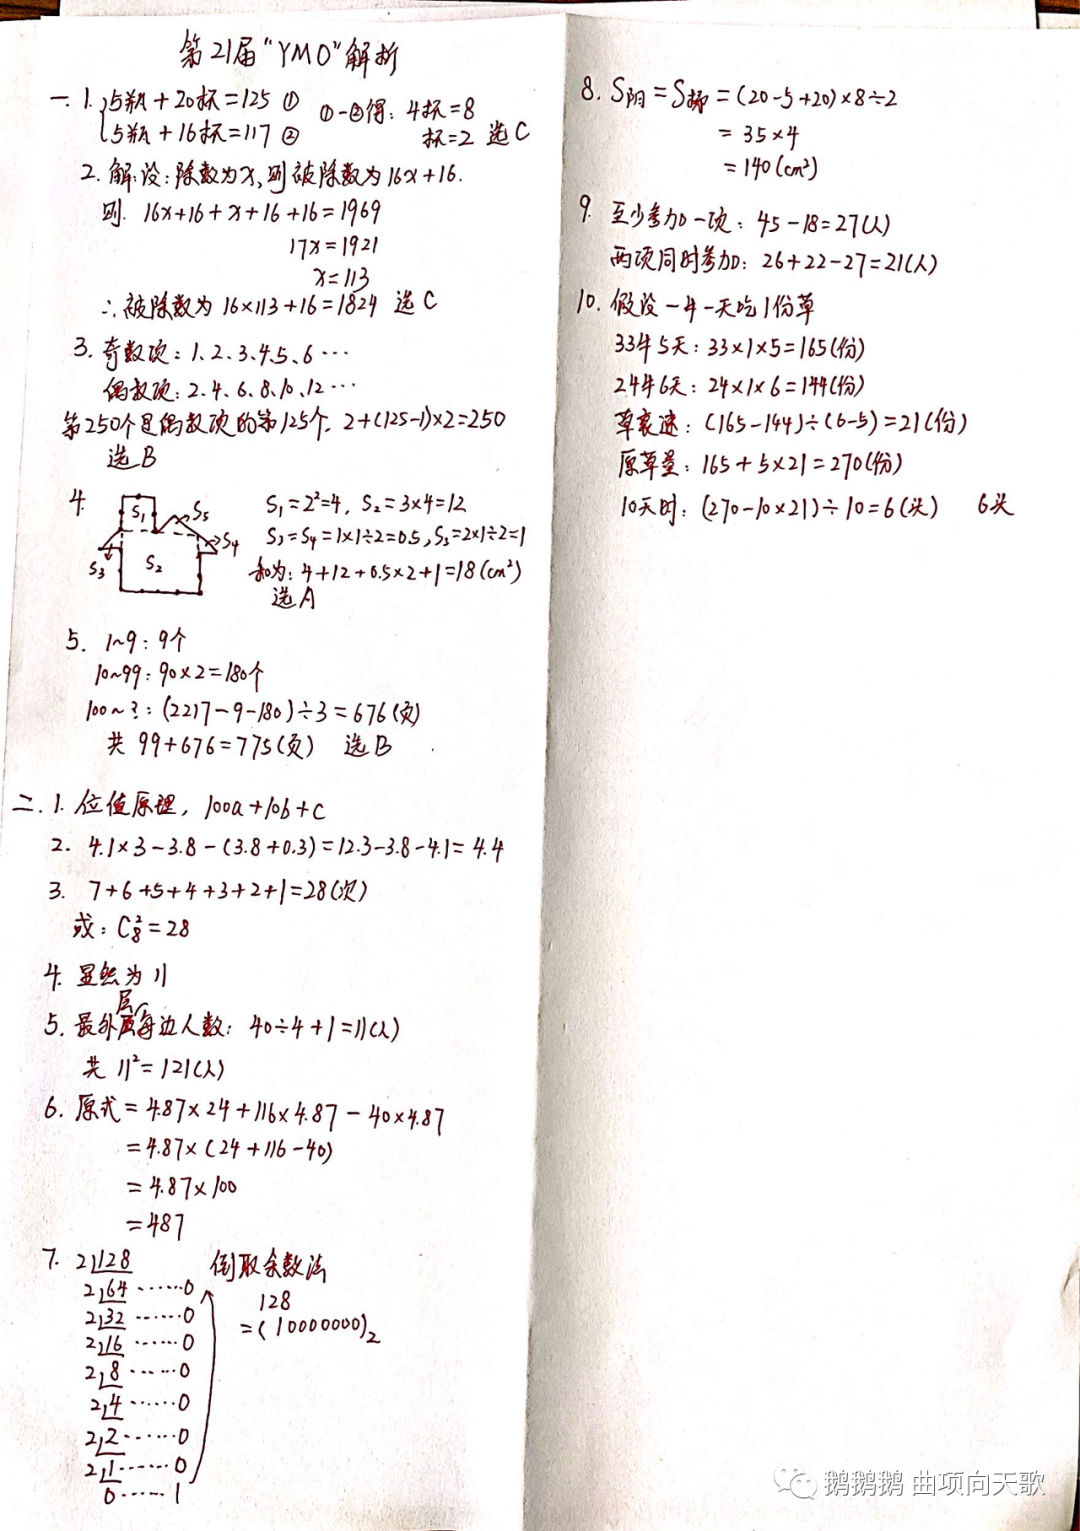 第21届“YMO”解析
一.1. 5瓶+20杯=125 ①
5瓶+16杯=117 ②
①-②得: 4杯=8
杯=2 选C
2. 解:设:除数为x,则被除数为16x+16.
则. 16x+16+x+16+16=1969
17x=1921
x=113
∴被除数为 16×113+16=1824 选C
3. 奇数项: 1、2、3、4、5、6 …
偶数项: 2、4、6、8、10、12 …
第250个是偶数项的第125个, 2+(125-1)×2=250
选B
4.
S1
S5
S4
S3
S2
S₁=2²=4, S₂=3×4=12
S₃=S₄=1×1÷2=0.5, S₅=2×1÷2=1
和为: 4+12+0.5×2+1=18(cm²)
选A
5. 1~9: 9个
10~99: 90×2=180个
100~?: (2217-9-180)÷3=676(页)
共 99+676=775(页) 选B
二.1. 位值原理, 100a+10b+c
2. 4.1×3-3.8-(3.8+0.3)=12.3-3.8-4.1=4.4
3. 7+6+5+4+3+2+1=28(次)
或: C₈²=28
4. 显然为11
5. 最外层每边人数: 40÷4+1=11(人)
共 11²=121(人)
6. 原式=4.87×24+116×4.87-40×4.87
=4.87×(24+116-40)
=4.87×100
=487
7. 2 128
2 64 ……0
2 32 ……0
2 16 ……0
2 8 ……0
2 4 ……0
2 2 ……0
2 1 ……0
0 ……1
倒取余数法
128
=(10000000)₂
8. S阴=S梯=(20-5+20)×8÷2
=35×4
=140(cm²)
9. 至少参加一项: 45-18=27(人)
两项同时参加: 26+22-27=21(人)
10. 假设一牛一天吃1份草
33牛5天: 33×1×5=165(份)
24牛6天: 24×1×6=144(份)
草衰速: (165-144)÷(6-5)=21(份)
原草量: 165+5×21=270(份)
10天时: (270-10×21)÷10=6(头) 6头
鹅鹅鹅 曲项向天歌